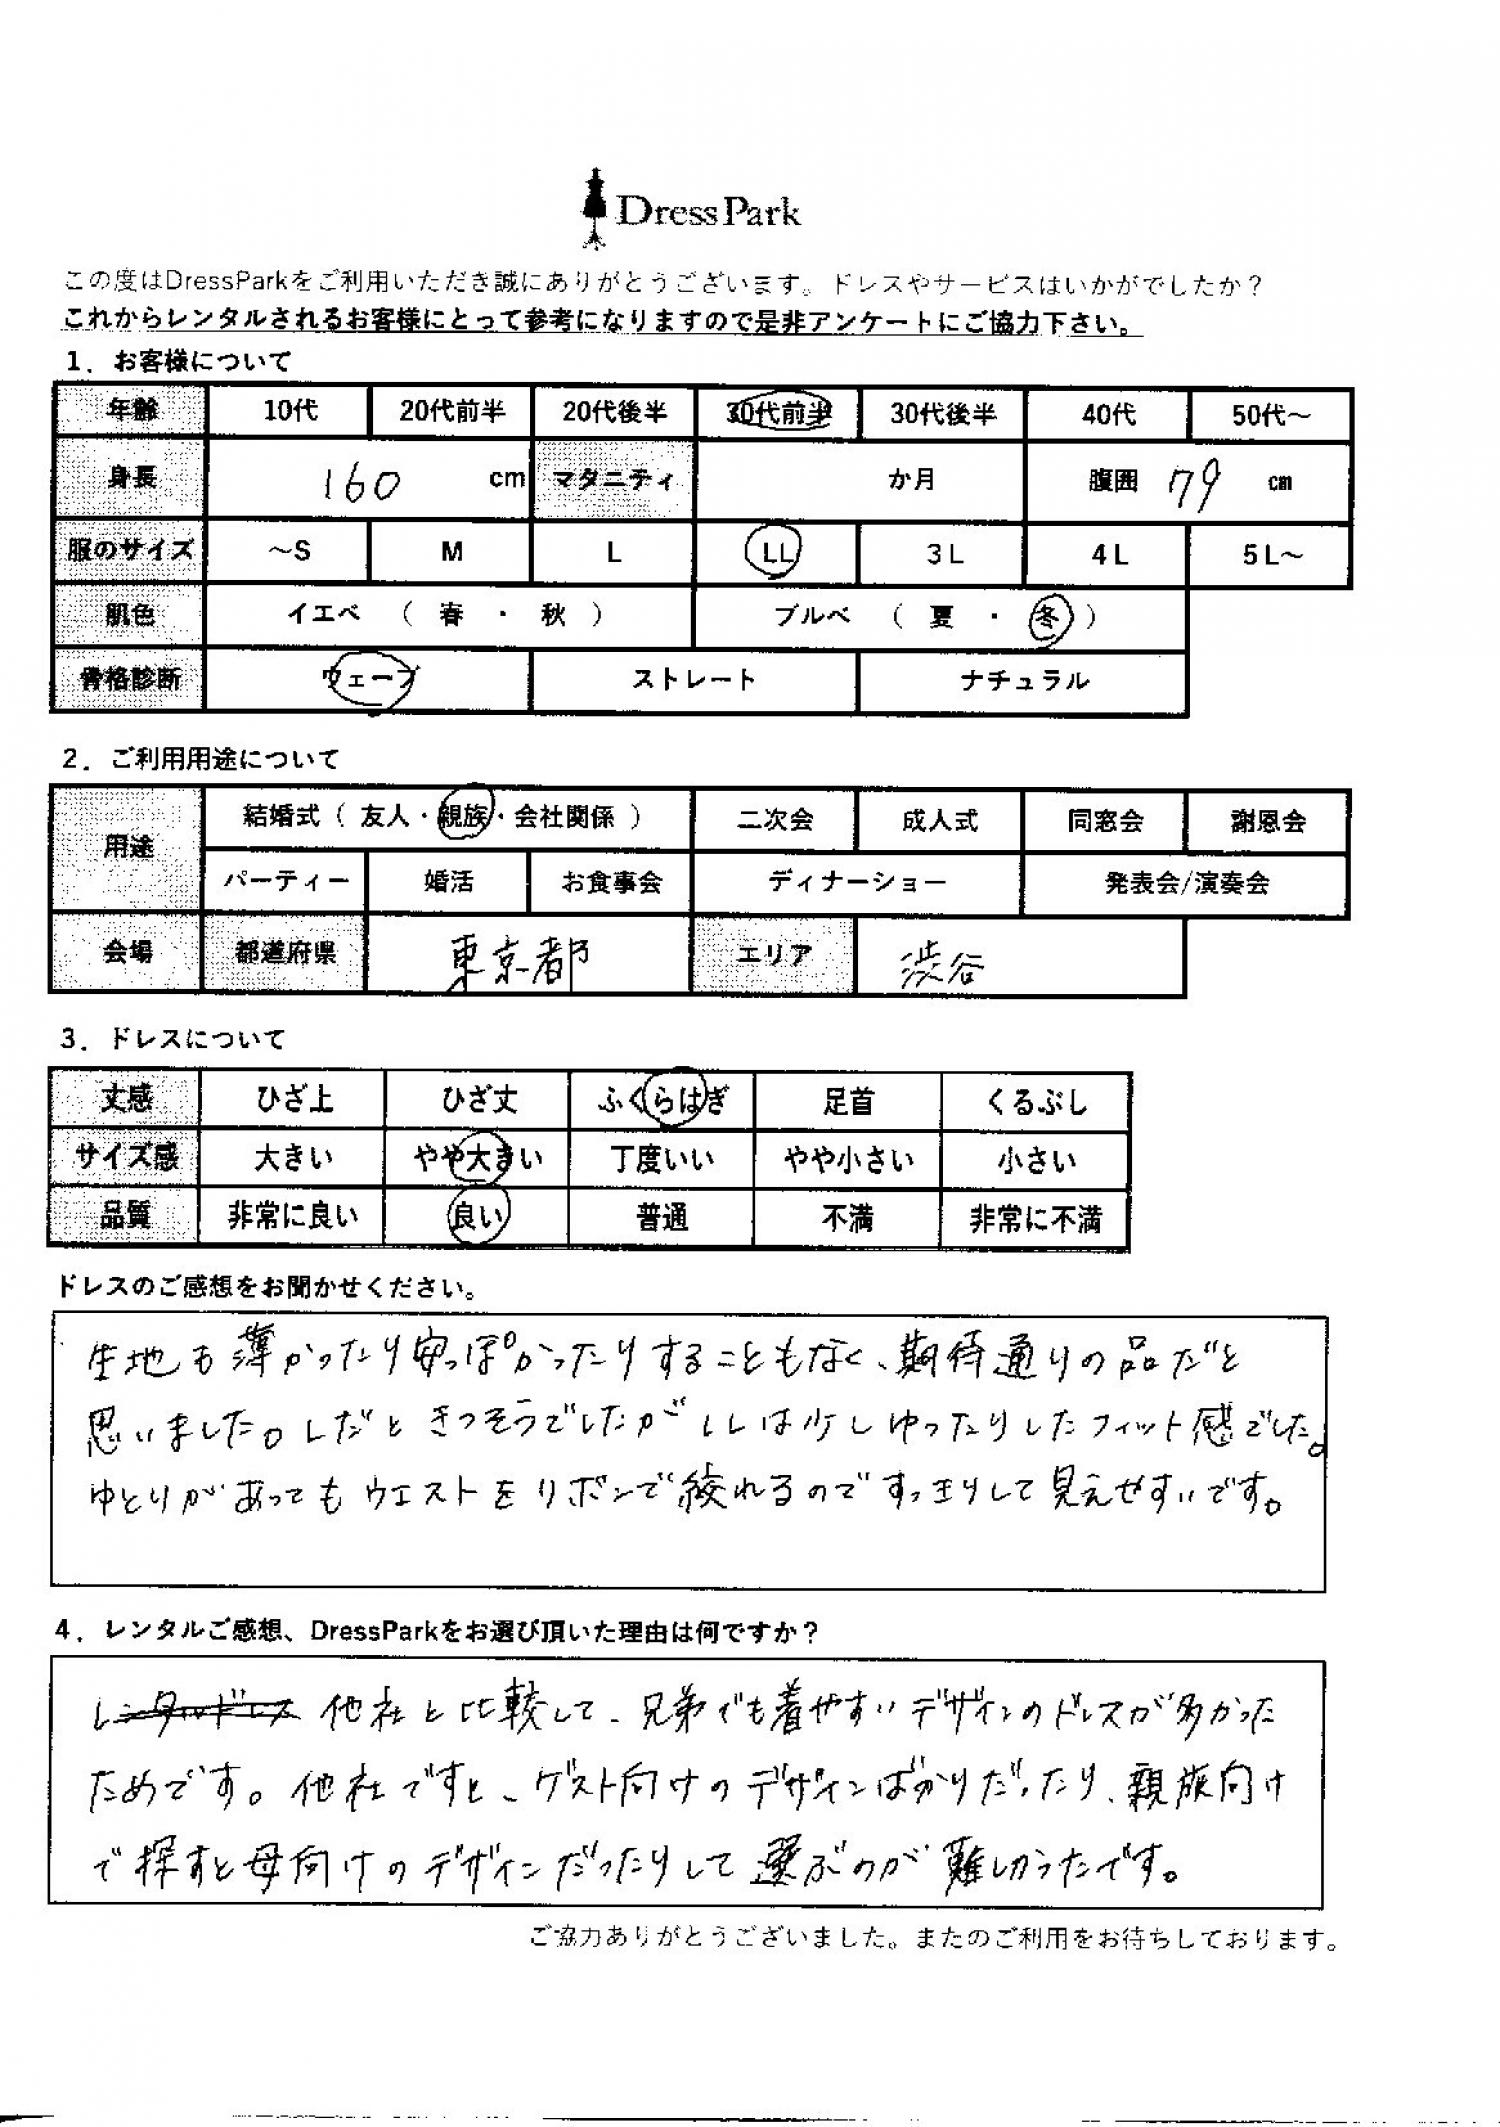 DressPark
この度はDressParkをご利用いただき誠にありがとうございます。ドレスやサービスはいかがでしたか？
これからレンタルされるお客様にとって参考になりますので是非アンケートにご協力下さい。
1．お客様について
年齢 10代 20代前半 20代後半 30代前半 30代後半 40代 50代～
身長 160 cm マタニティ か月 腹囲 79 cm
服のサイズ ～S M L LL 3L 4L 5L～
肌色 イエベ （ 春 ・ 秋 ） ブルベ （ 夏 ・ 冬 ）
骨格診断 ウェーブ ストレート ナチュラル
2．ご利用用途について
用途 結婚式（ 友人・親族・会社関係 ） 二次会 成人式 同窓会 謝恩会
パーティー 婚活 お食事会 ディナーショー 発表会/演奏会
会場 都道府県 東京都 エリア 渋谷
3．ドレスについて
丈感 ひざ上 ひざ丈 ふくらはぎ 足首 くるぶし
サイズ感 大きい やや大きい 丁度いい やや小さい 小さい
品質 非常に良い 良い 普通 不満 非常に不満
ドレスのご感想をお聞かせください。
生地も薄かったり安っぽかったりすることもなく、期待通りの品だと
思いました。Lだときつそうでしたが LLは少しゆったりしたフィット感でした。
ゆとりがあってもウエストをリボンで絞れるのですっきりして見えやすいです。
4．レンタルご感想、DressParkをお選び頂いた理由は何ですか？
レンタルドレス 他社と比較して、兄弟でも着やすいデザインのドレスが多かった
ためです。他社ですと、ゲスト向けのデザインばかりだったり、親族向け
で探すと母向けのデザインだったりして選ぶのが難しかったです。
ご協力ありがとうございました。またのご利用をお待ちしております。